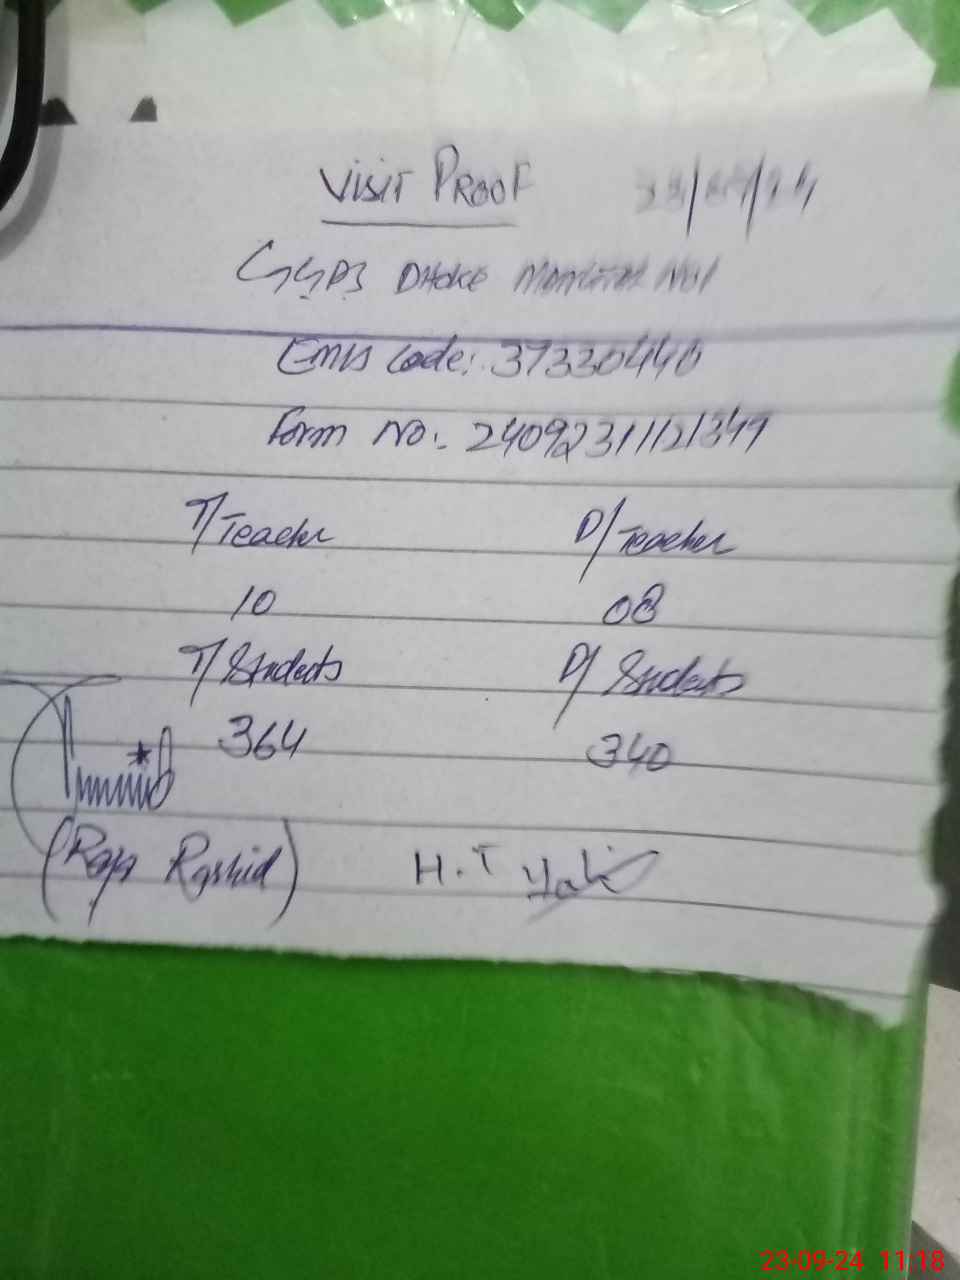 VISIT PROOF 23/09/24
GGPS DHOKE NO1
Emis Code: 37330440
Form No:- 2409231121349
T/Teacher P/Teacher
10 08
T/Students P/Students
364 340
(Raja Rashid) H.T
23-09-24 11:18